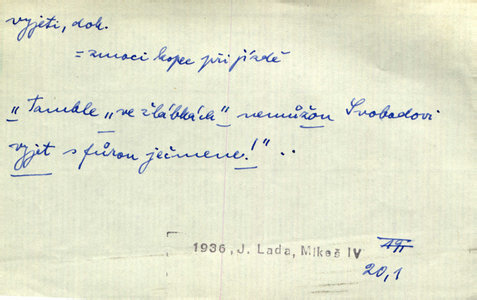 vyjeti, dok.
= zmoci kopec při jízdě
„Tamhle „ve žlábkách“ nemůžou Svobodovi
vyjet s fůrou ječmene!“ ..
1936, J. Lada, Mikeš IV
20,1